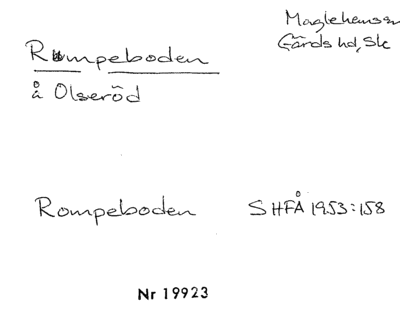 Maglehems sn
Gärds hd, Sk
Rumpeboden
å Olseröd
Rompeboden SHFÅ 1953:158
Nr 19923